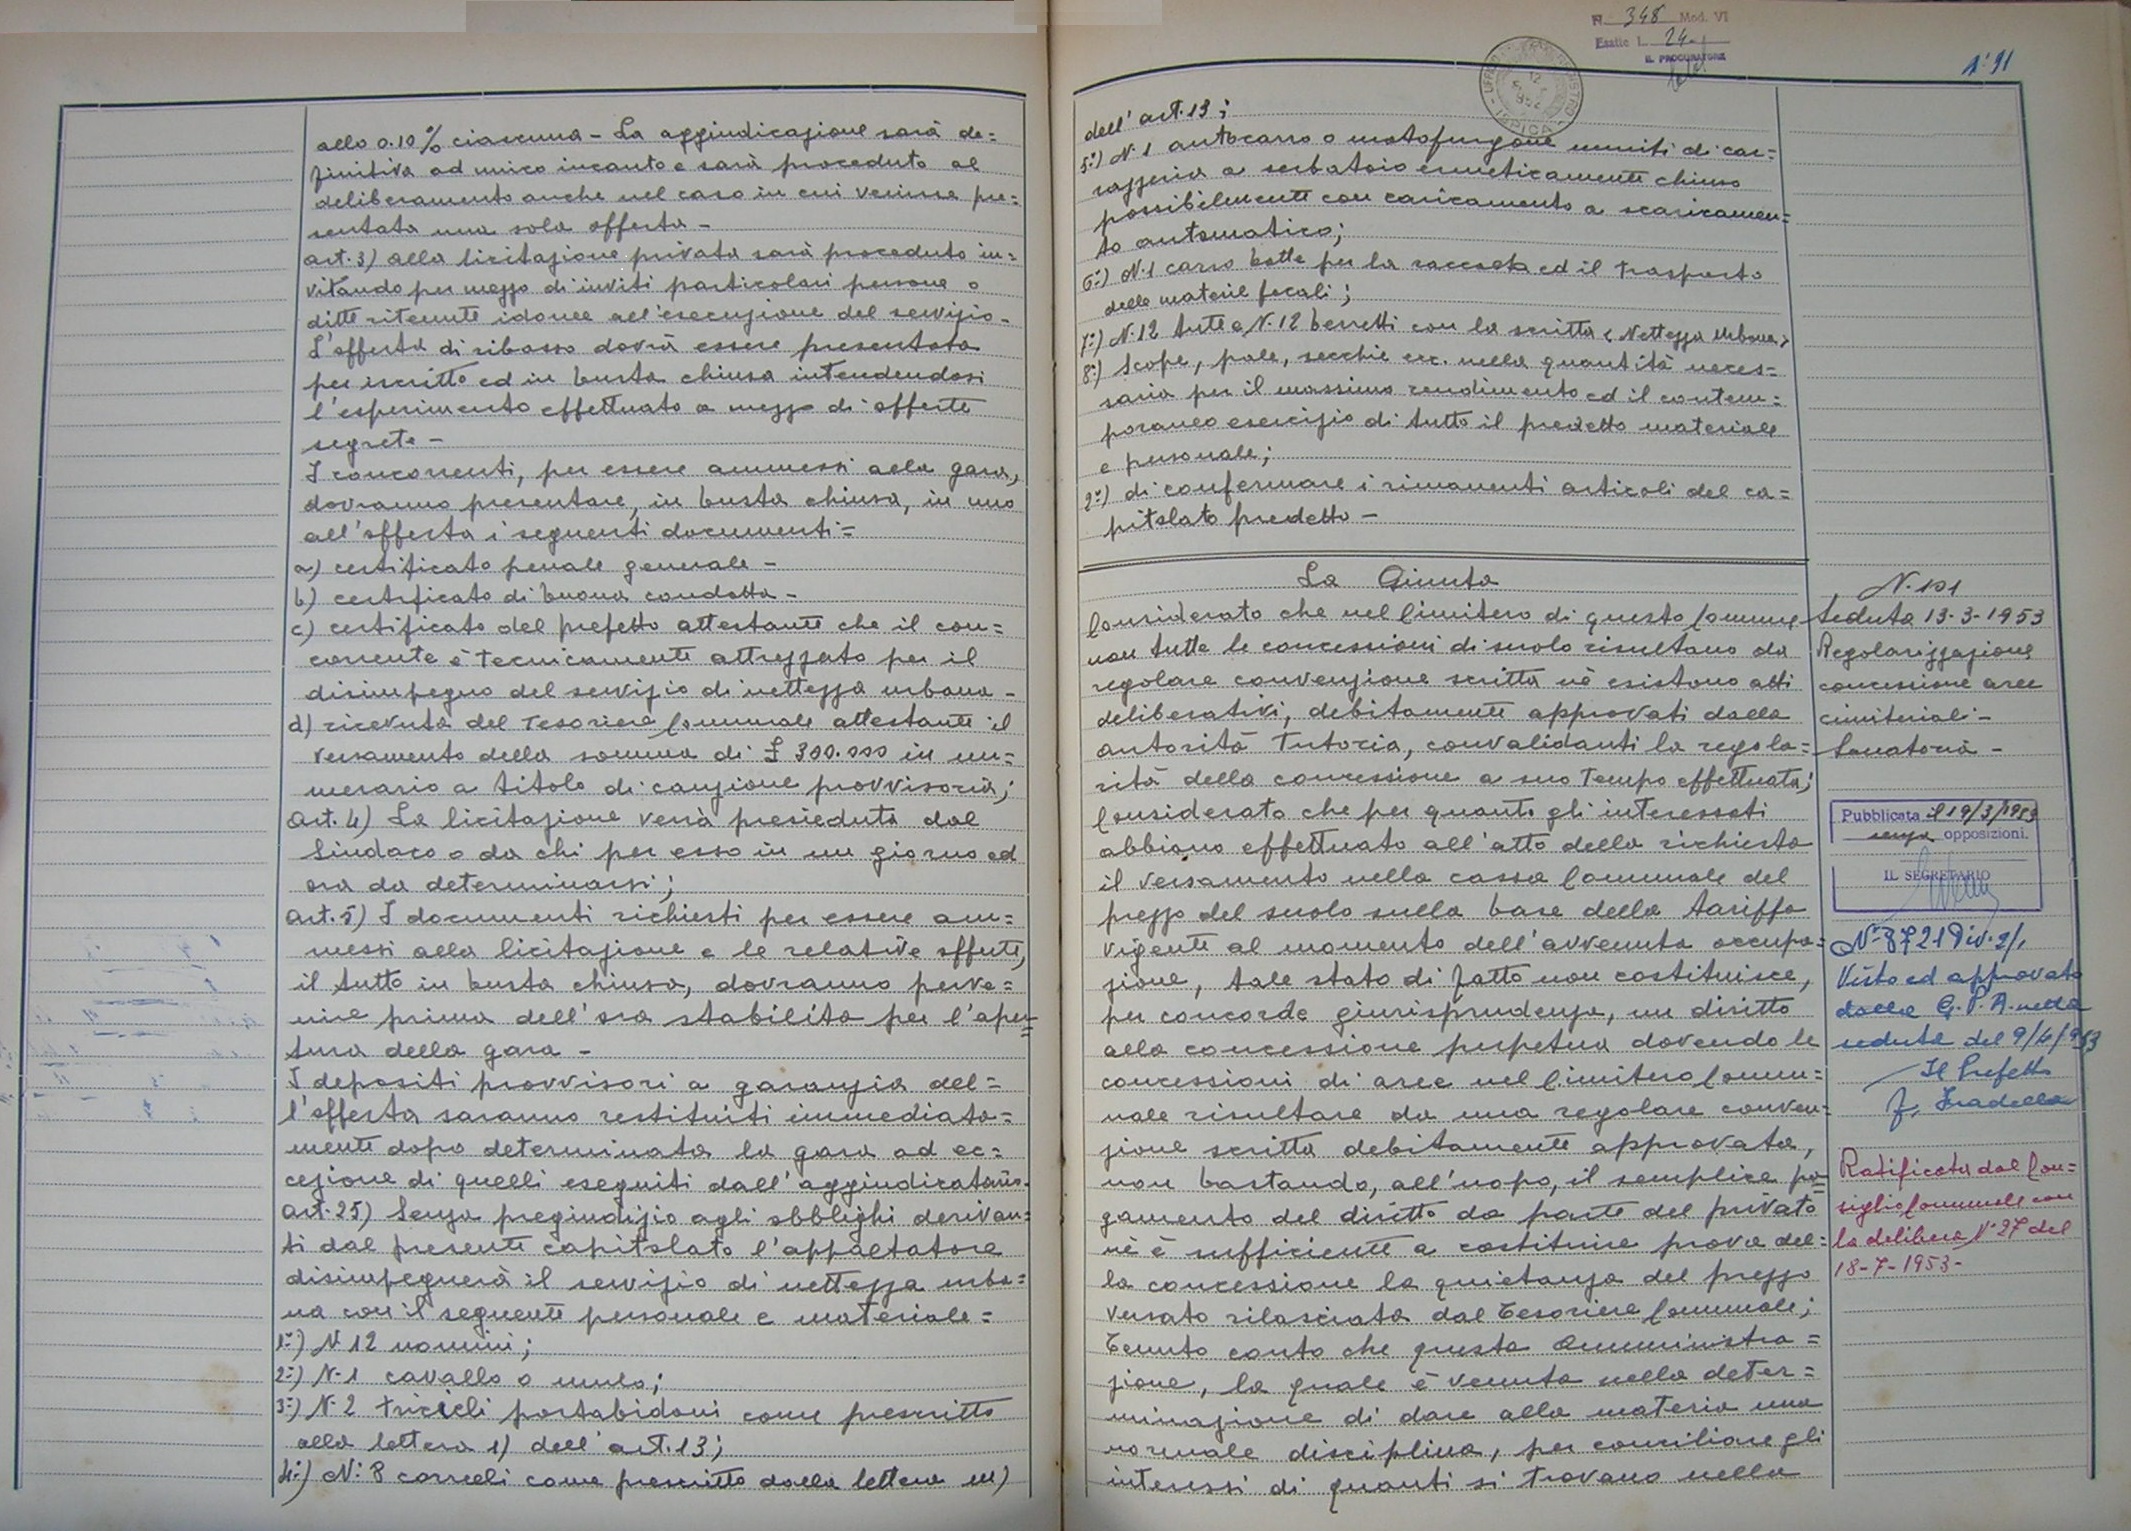 allo 0.10% ciascuna - La aggiudicazione sarà de=
finitiva ad unico incanto e sarà proceduto al
deliberamento anche nel caso in cui venisse pre=
sentata una sola offerta -
art. 3) alla licitazione privata sarà proceduto in=
vitando per mezzo di inviti particolari persone o
ditte ritenute idonee all'esecuzione del servizio -
L'offerta di ribasso dovrà essere presentata
per iscritto ed in busta chiusa intendendosi
l'esperimento effettuato a mezzo di offerte
segrete -
I concorrenti, per essere ammessi alla gara,
dovranno presentare, in busta chiusa, in uno
all'offerta i seguenti documenti =
a) certificato penale generale -
b) certificato di buona condotta -
c) certificato del prefetto attestante che il con=
corrente è tecnicamente attrezzato per il
disimpegno del servizio di nettezza urbana -
d) ricevuta del Tesoriere Comunale attestante il
versamento della somma di £ 300.000 in nu=
merario a titolo di cauzione provvisoria;
art. 4) La licitazione verrà presieduta dal
Sindaco o da chi per esso in un giorno ed
ora da determinarsi;
art. 5) I documenti richiesti per essere am=
messi alla licitazione e le relative offerte,
il tutto in busta chiusa, dovranno perve=
nire prima dell'ora stabilita per l'aper=
tura della gara -
I depositi provvisori a garanzia del=
l'offerta saranno restituiti immediata=
mente dopo determinata la gara ad ec=
cezione di quelli eseguiti dall'aggiudicatario.
art. 25) Senza pregiudizio agli obblighi derivan=
ti dal presente capitolato l'appaltatore
disimpegnerà il servizio di nettezza urba=
na con il seguente personale e materiale =
1°) N 12 uomini;
2°) N. 1 cavallo o mulo;
3°) N. 2 tricicli portabidoni come prescritto
alla lettera 1) dell'art. 13;
4°) N. 8 carrelli come prescritto dalla lettera m)
N 348 Mod. VI
Esatte L. 24.-
IL PROCURATORE
UFFICIO REGISTRO
ISPICA
N° 91
dell'art. 13;
5°) N. 1 autocarro o motofurgone muniti di car=
rozzeria a serbatoio ermeticamente chiuso
possibilmente con caricamento a scaricamen=
to automatico;
6°) N. 1 carro botte per la raccolta ed il trasporto
delle materie fecali;
7°) N. 12 tute e N. 12 berretti con la scritta « Nettezza Urbana »
8°) Scope, pale, secchie ecc. nella quantità neces=
saria per il massimo rendimento ed il contem=
poraneo esercizio di tutto il predetto materiale
e personale;
2°) di confermare i rimanenti articoli del ca=
pitolato predetto -
La Giunta
Considerato che nel Cimitero di questo Comune
non tutte le concessioni di suolo risultano da
regolare convenzione scritta nè esistono atti
deliberativi, debitamente approvati dalla
autorità Tutoria, convalidanti la regola=
rità della concessione a suo tempo effettuata;
Considerato che per quanto gli interessati
abbiano effettuato all'atto della richiesta
il versamento nella cassa Comunale del
prezzo del suolo sulla base della tariffa
vigente al momento dell'avvenuta occupa=
zione, tale stato di fatto non costituisce,
per concorde giurisprudenza, un diritto
alla concessione perpetua dovendo le
concessioni di aree nel Cimitero Comu=
nale risultare da una regolare conven=
zione scritta debitamente approvata,
non bastando, all'uopo, il semplice pa=
gamento del diritto da parte del privato
nè è sufficiente a costituire prova del=
la concessione la quietanza del prezzo
versato rilasciata dal Tesoriere Comunale;
Tenuto conto che questa Amministra=
zione, la quale è venuta nella deter=
minazione di dare alla materia una
normale disciplina, per conciliare gli
interessi di quanti si trovano nella
N. 101
Seduta 13-3-1953
Regolarizzazione
concessione aree
cimiteriali -
Sanatoria -
Pubblicata il 19/3/1953
senza opposizioni.
IL SEGRETARIO
N° 8721 Div. 2/1
Visto ed approvato
dalla G. P. A. nella
seduta del 9/4/953
Il Prefetto
f.
Ratificata dal Con=
siglio Comunale con
la delibera N° 27 del
18-7-1953 -